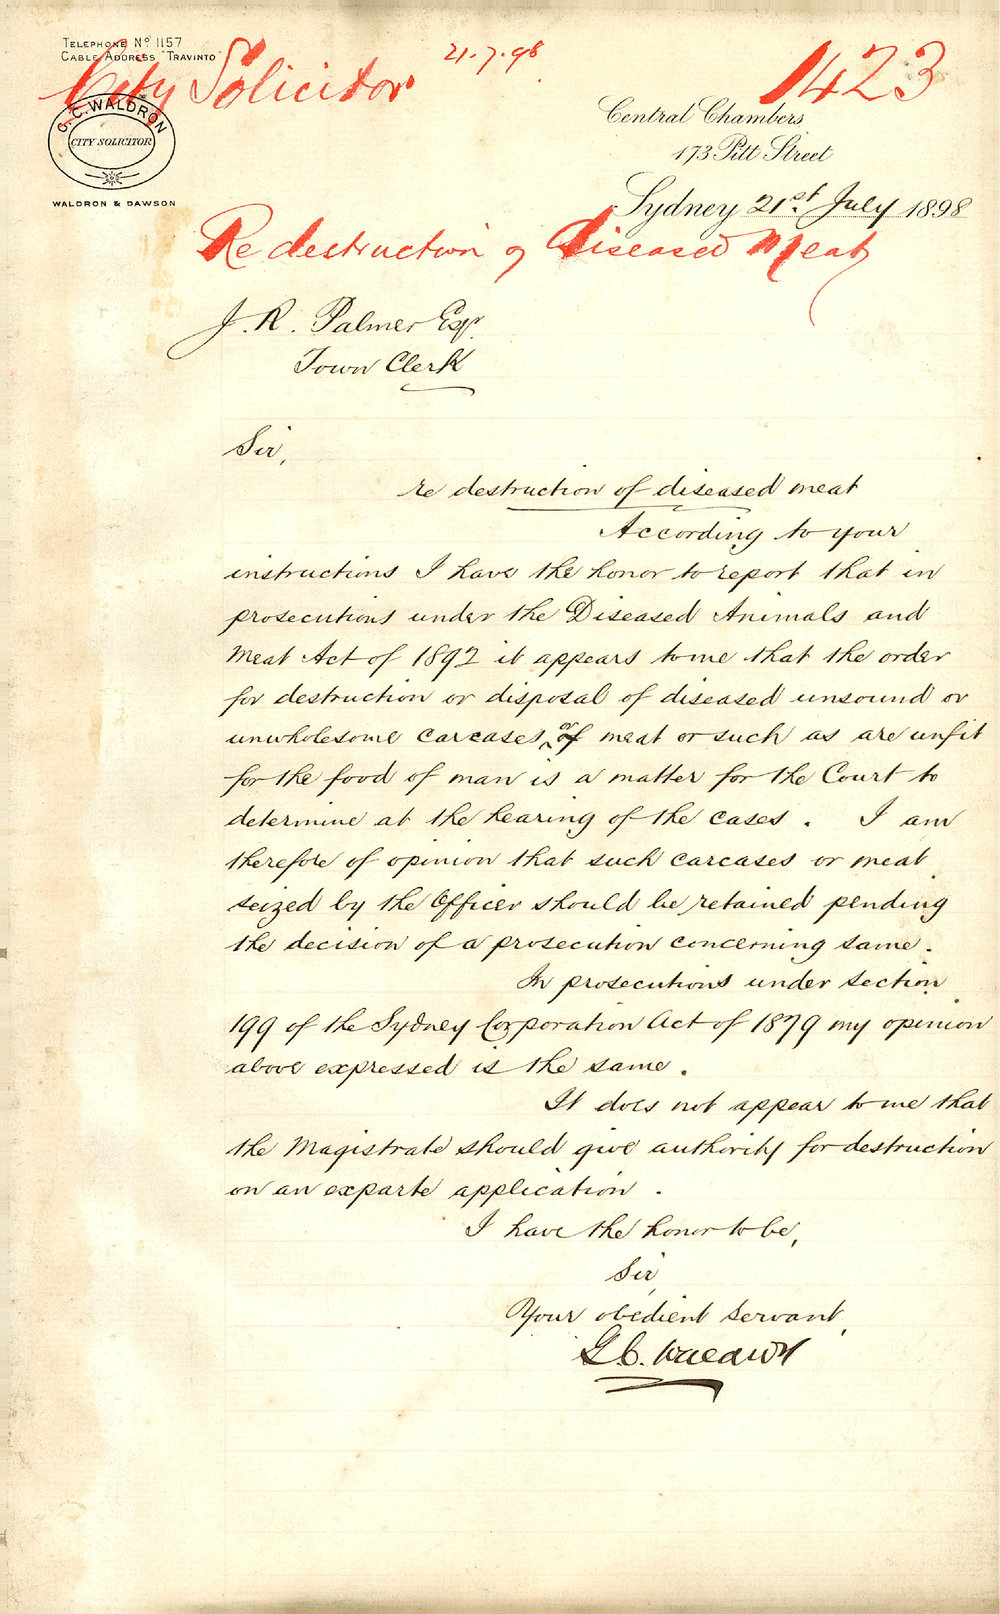 TELEPHONE No 1157
CABLE ADDRESS "TRAVINTO"
City Solicitor
21.7.98
1423
G.C. WALDRON
CITY SOLICITOR
WALDRON & DAWSON
Central Chambers
173 Pitt Street
Sydney 21st July 1898
Re destruction of Diseased Meat
J. R. Palmer Esqr.
Town Clerk
Sir,
re destruction of diseased meat
According to your
instructions I have the honor to report that in
prosecutions under the Diseased Animals and
Meat Act of 1892 it appears to me that the order
for destruction or disposal of diseased unsound or
unwholesome carcases or of meat or such as are unfit
for the food of man is a matter for the Court to
determine at the hearing of the cases. I am
therefore of opinion that such carcases or meat
seized by the Officer should be retained pending
the decision of a prosecution concerning same.
In prosecutions under section
199 of the Sydney Corporation Act of 1879 my opinion
above expressed is the same.
It does not appear to me that
the Magistrate should give authority for destruction
on an exparte application.
I have the honor to be,
Sir,
Your obedient servant,
G.C. Waldron